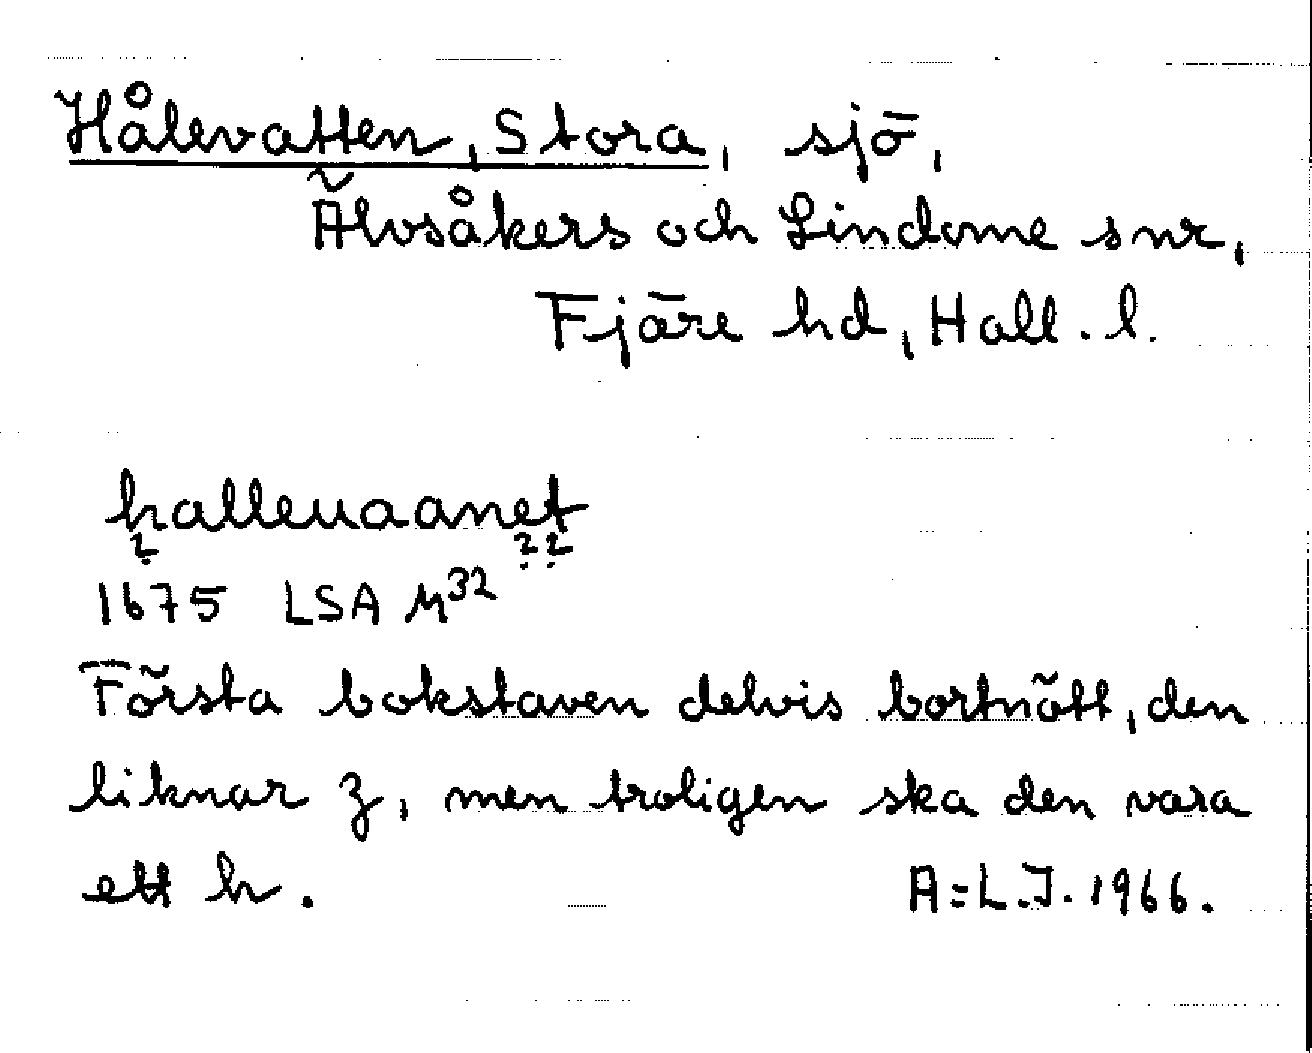 Hålevatten, Stora, sjö,
Älvsåkers och Lindome snr,
Fjäre hd, Hall. l.
halleuaanet
? ? ?
1675 LSA M³²
Första bokstaven delvis bortnött, den
liknar z, men troligen ska den vara
ett h.
A=L.J. 1966.